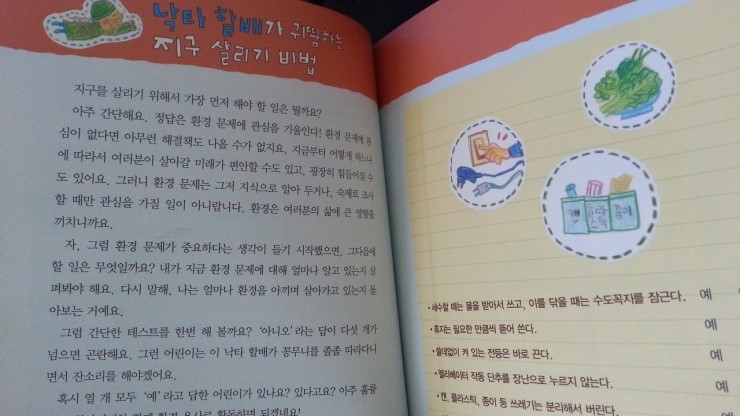 낙타 할배가 귀띔하는
지구 살리기 비법
지구를 살리기 위해서 가장 먼저 해야 할 일은 뭘까요?
아주 간단해요. 정답은 환경 문제에 관심을 기울인다! 환경 문제에 관
심이 없다면 아무런 해결책도 나올 수가 없지요. 지금부터 어떻게 하느냐
에 따라서 여러분이 살아갈 미래가 편안할 수도 있고, 굉장히 힘들어질 수
도 있어요. 그러니 환경 문제는 그저 지식으로 알아 두거나, 숙제로 조사
할 때만 관심을 가질 일이 아니랍니다. 환경은 여러분의 삶에 큰 영향을
끼치니까요.
자, 그럼 환경 문제가 중요하다는 생각이 들기 시작했으면, 그다음에
할 일은 무엇일까요? 내가 지금 환경 문제에 대해 얼마나 알고 있는지 살
펴봐야 해요. 다시 말해, 나는 얼마나 환경을 아끼며 살아가고 있는지 돌
아보는 거예요.
그럼 간단한 테스트를 한번 해 볼까요? '아니오'라는 답이 다섯 개가
넘으면 곤란해요. 그런 어린이는 이 낙타 할배가 꽁무니를 졸졸 따라다니
면서 잔소리를 해야겠어요.
혹시 열 개 모두 '예'라고 답한 어린이가 있나요? 있다고요? 아주 훌륭
환경 용사로 활동하면 되겠네요!
캔 플라스틱 종이
•세수할 때는 물을 받아서 쓰고, 이를 닦을 때는 수도꼭지를 잠근다. 예
•휴지는 필요한 만큼씩 뜯어 쓴다. 예
•쓸데없이 켜 있는 전등은 바로 끈다. 예
•엘리베이터 작동 단추를 장난으로 누르지 않는다. 예
•캔, 플라스틱, 종이 등 쓰레기는 분리해서 버린다.